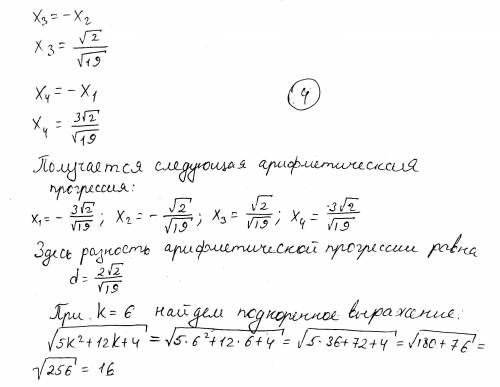 x₃ = -x₂
x₃ = √2/√19
x₄ = -x₁
④
x₄ = 3√2/√19
Получается следующая арифметическая
прогрессия:
x₁ = - 3√2/√19; x₂ = - √2/√19; x₃ = √2/√19; x₄ = 3√2/√19
Здесь разность арифметической прогрессии равна
d = 2√2/√19
При k = 6 найдем подкоренное выражение:
√(5k² + 12k + 4) = √(5·6² + 12·6 + 4) = √(5·36 + 72 + 4) = √(180 + 76) =
√256 = 16